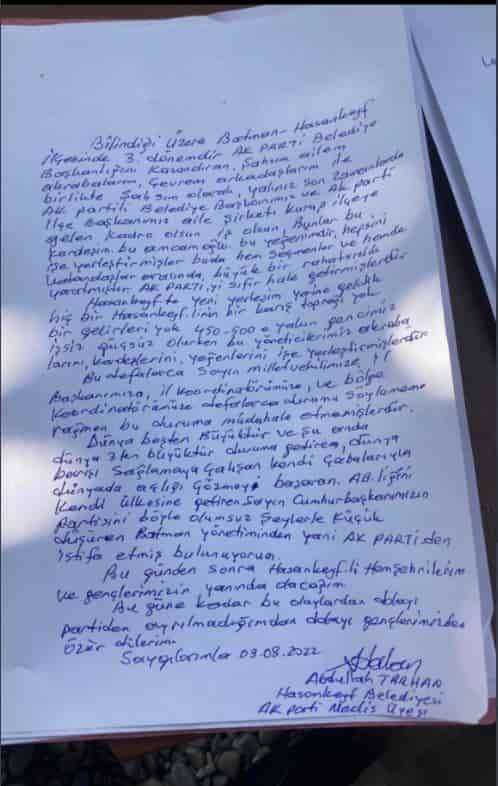 Bilindiği Üzere Batman-Hasankeyf
İlçesinde 3. dönemdir AK PARTİ Belediye
Başkanlığını Kazandıran, Şahsım ailem
akrabalarım, Çevrem arkadaşlarım ile
birlikte Şahsım olarak, yalnız son zamanlarda
AK partili Belediye Başkanımız ve AK parti
ilçe Başkanımız aile Şirketi kurup ilçeye
gelen Kadro olsun iş olsun, Bunlar bu
Kardeşim bu amcamoğlu bu yeğenimdir, hepsini
işe yerleştirmişler buda hem Seçmenler ve hemde
vatandaşlar arasında, büyük bir rahatsızlık
yaratmıştır. AK PARTİ,yi sıfır hale getirmişlerdir
Hasankeyf'te yeni yerleşim yerine geldik
hiç bir Hasankeyf.linin bir karış toprağı yok
bir gelirleri yok 450-500 e yakın gencimiz
işsiz güçsüz olurken bu yöneticilerimiz akraba
larını, kardeşlerini, yeğenlerini işe yerleştirmişlerdir
Bu defalarca Sayın milletvekilimize, il
Başkanımıza, il koordinatörümüze, ve bölge
Koordinatörümüze defalarca durumu Söylememe
rağmen bu duruma müdahale etmemişlerdir.
Dünya beşten Büyüktür ve şu anda
dünya 2ten büyüktür duruma getiren, dünya
barışı Sağlamaya Çalışan kendi Çabalarıyla
dünyada açlığı Çözmeyi başaran. AB.liğini
Kendi ülkesine getiren Sayın Cumhurbaşkanımızın
Partisini böyle olumsuz Şeylerle Küçük
düşüren Batman yönetiminden yani AK PARTİ'den
istifa etmiş bulunuyorum.
Bu günden sonra Hasankeyf.li Hemşehrilerim
ve gençlerimizin yanında olacağım
Bu güne kadar bu olaylardan dolayı
partiden ayrılmadığımdan dolayı gençlerimizden
özür dilerim
Saygılarımla 03.08.2022
Abdullah TARHAN
Hasankeyf Belediyesi
AK parti Meclis Üyesi